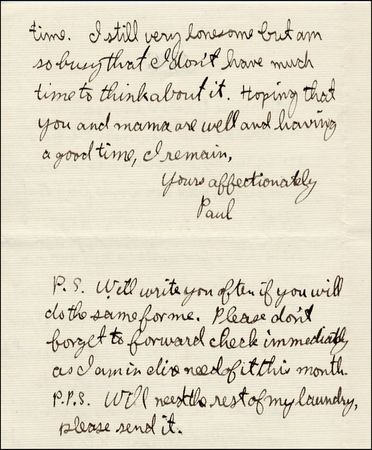 time. I still very lonesome but am
so busy that I don't have much
time to think about it. Hoping that
you and mama are well and having
a good time, I remain,
Yours affectionately
Paul
P.S. Will write you often if you will
do the same for me. Please don't
forget to forward check immediately
as I am in dire need of it this month.
P.P.S. Will need the rest of my laundry,
please send it.